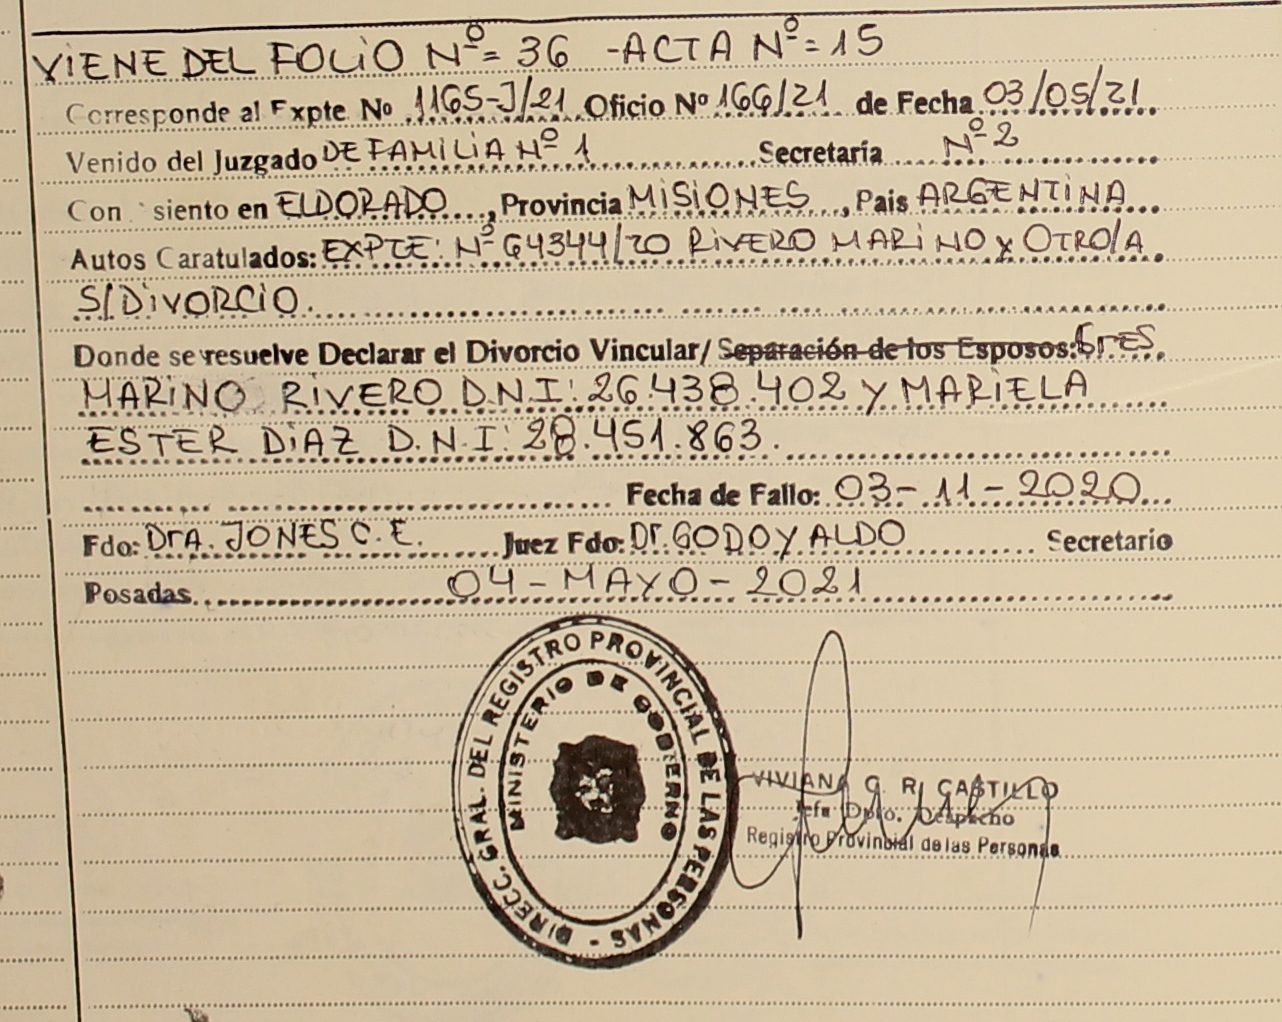 VIENE DEL FOLIO Nº= 36 -ACTA Nº= 15
Corresponde al Expte No 1165-J/21 Oficio Nº 166/21 de Fecha 03/05/21
Venido del Juzgado DE FAMILIA Nº 1 Secretaria Nº 2
Con siento en ELDORADO, Provincia MISIONES, Pais ARGENTINA
Autos Caratulados: EXPTE: Nº 64344/20 RIVERO MARINO Y OTRO/A
S/DIVORCIO.
Donde se resuelve Declarar el Divorcio Vincular/ Separación de los Esposos: SrES
MARINO RIVERO D.N.I: 26.438.402 Y MARIELA
ESTER DIAZ D.N.I: 28.451.863.
Fecha de Fallo: 03-11-2020
Fdo: DrA. JONES C.E. Juez Fdo: Dr. GODOY ALDO Secretario
Posadas 04-MAYO-2021
DIRECC. GRAL. DEL REGISTRO PROVINCIAL DE LAS PERSONAS -
MINISTERIO DE GOBIERNO
VIVIANA G. R. CASTILLO
Jefa Dpto. Despacho
Registro Provincial de las Personas